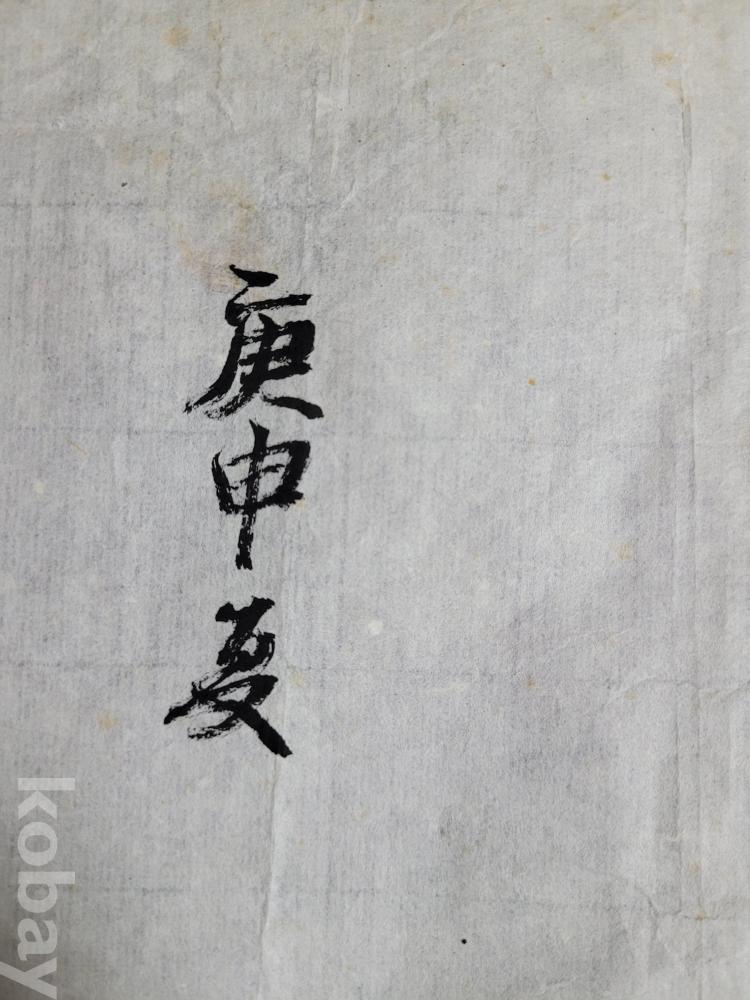 庚申夏
kobay